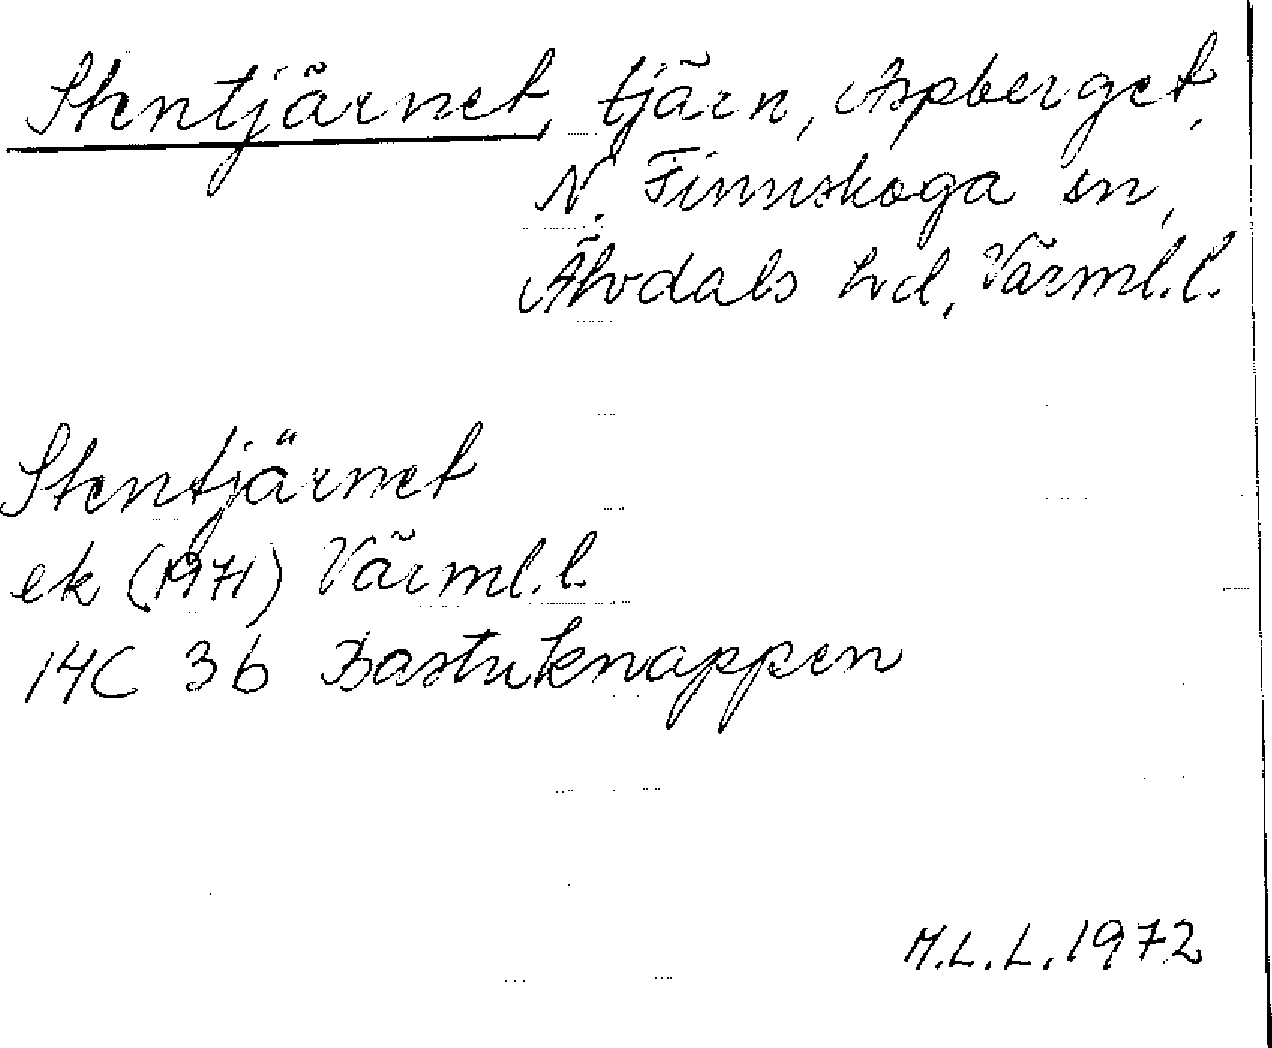 Stentjärnet, tjärn, Aspberget,
N. Finnskoga sn,
Älvdals hd, Värml.l.
Stentjärnet
ek (1971) Värml.l.
14C 3b Bastuknappen
M.L.L. 1972